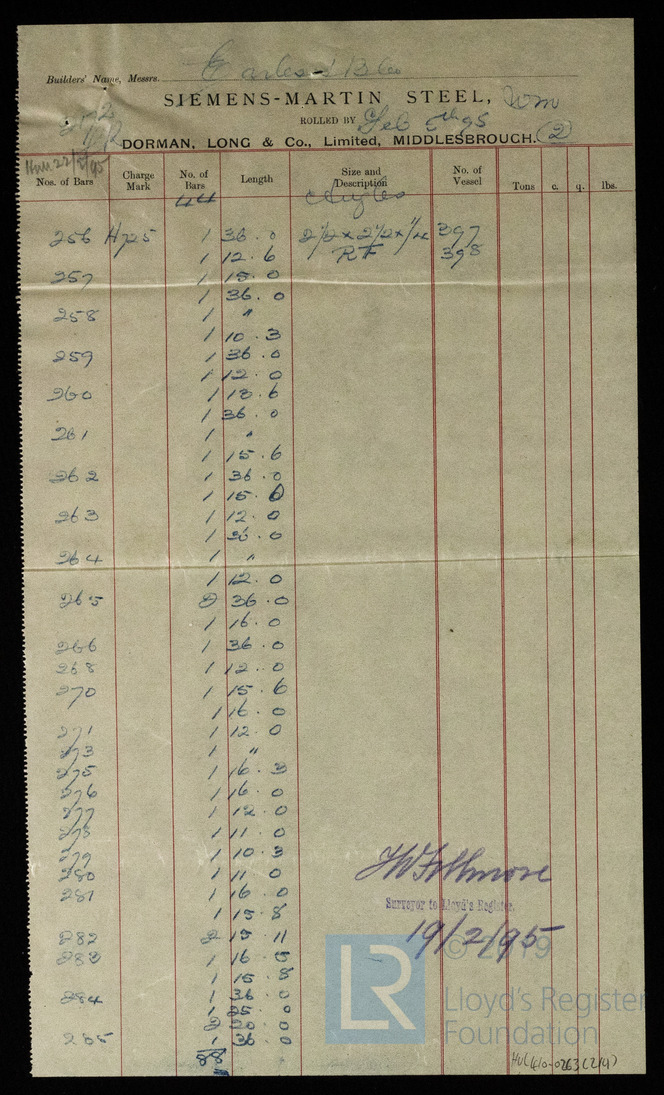 Builders' Name, Messrs. Earles
SIEMENS-MARTIN STEEL,
ROLLED BY Feb 5th 95
DORMAN, LONG & Co., Limited, MIDDLESBROUGH. 2
Nos. of Bars Charge Mark No. of Bars Length Size and Description No. of Vessel Tons c. q. lbs.
44 Angles
256 H725 1 36.0 2 1/2 x 2 1/2 x 1/4 397
1 12.6 RF 398
257 1 15.0
1 36.0
258 1 "
1 10.3
259 1 36.0
1 12.0
260 1 18.6
1 36.0
261 1 "
1 15.6
262 1 36.0
1 15.0
263 1 12.0
1 36.0
264 1 "
1 12.0
265 2 36.0
1 16.0
266 1 36.0
268 1 12.0
270 1 15.6
1 16.0
271 1 12.0
273 1 "
275 1 16.3
276 1 16.0
277 1 12.0
278 1 11.0
279 1 10.3
280 1 11.0
281 1 16.0
1 15.8
282 2 15.11
283 1 16.5
1 15.8
284 1 36.0
1 25.0
2 20.0
285 1 36.0
88
Surveyor to Lloyd's Register.
19/2/95
© 2019
LR
Lloyd's Register
Foundation